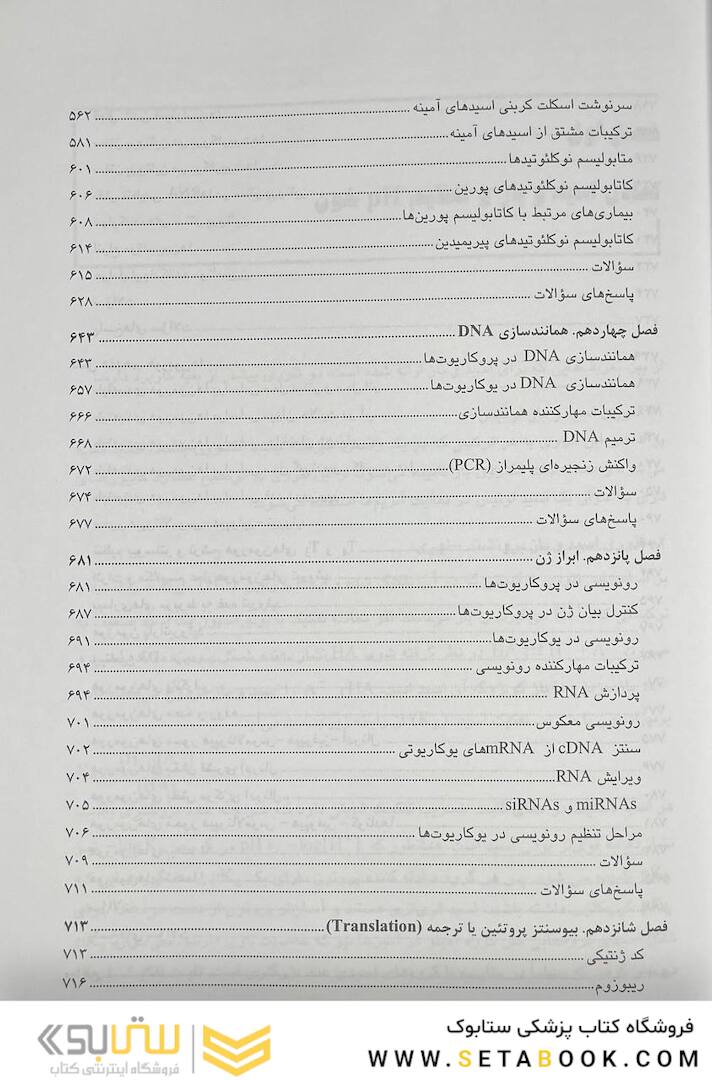 سرنوشت اسکلت کربنی اسیدهای آمینه ..... ۵۶۲
ترکیبات مشتق از اسیدهای آمینه ..... ۵۸۱
متابولیسم نوکلئوتیدها ..... ۶۰۱
کاتابولیسم نوکلئوتیدهای پورین ..... ۶۰۶
بیماری‌های مرتبط با کاتابولیسم پورین‌ها ..... ۶۰۸
کاتابولیسم نوکلئوتیدهای پیریمیدین ..... ۶۱۴
سؤالات ..... ۶۱۵
پاسخ‌های سؤالات ..... ۶۲۸
فصل چهاردهم. همانندسازی DNA ..... ۶۴۳
همانندسازی DNA در پروکاریوت‌ها ..... ۶۴۳
همانندسازی DNA در یوکاریوت‌ها ..... ۶۵۷
ترکیبات مهارکننده همانندسازی ..... ۶۶۶
ترمیم DNA ..... ۶۶۸
واکنش زنجیره‌ای پلیمراز (PCR) ..... ۶۷۲
سؤالات ..... ۶۷۴
پاسخ‌های سؤالات ..... ۶۷۷
فصل پانزدهم. ابراز ژن ..... ۶۸۱
رونویسی در پروکاریوت‌ها ..... ۶۸۱
کنترل بیان ژن در پروکاریوت‌ها ..... ۶۸۷
رونویسی در یوکاریوت‌ها ..... ۶۹۱
ترکیبات مهارکننده رونویسی ..... ۶۹۴
پردازش RNA ..... ۶۹۴
رونویسی معکوس ..... ۷۰۱
سنتز cDNA از mRNAهای یوکاریوتی ..... ۷۰۲
ویرایش RNA ..... ۷۰۴
miRNAs و siRNAs ..... ۷۰۵
مراحل تنظیم رونویسی در یوکاریوت‌ها ..... ۷۰۶
سؤالات ..... ۷۰۹
پاسخ‌های سؤالات ..... ۷۱۱
فصل شانزدهم. بیوسنتز پروتئین یا ترجمه (Translation) ..... ۷۱۳
کد ژنتیکی ..... ۷۱۳
ریبوزوم ..... ۷۱۶
فروشگاه کتاب پزشکی ستابوک
WWW.SETABOOK.COM
ستابوک
فروشگاه اینترنتی کتاب